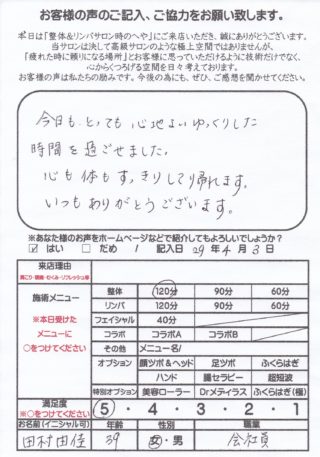 お客様の声のご記入、ご協力をお願い致します。
本日は「整体&リンパサロン時のへや」にご来店いただき、誠にありがとうございます。
当サロンは決して高級サロンのような極上空間ではありませんが、
「疲れた時に頼りになる場所」とお客様に思っていただけるように技術だけでなく、
心からくつろげる空間を日々考えております。
お客様の声は私たちの励みです。今後の為にも、ぜひ、ご感想を聞かせてください。
今日も、とっても心地よいゆっくりした
時間を過ごせました。
心も体もすっきりして帰れます。
いつもありがとうございます。
※あなた様のお声をホームページなどで紹介してもよろしいでしょうか?
☑ はい □ だめ / 記入日 29年 4月 3日
来店理由
肩こり・頭痛・むくみ・リフレッシュ等
施術メニュー
※本日受けた
メニューに
○をつけてください
整体 120分 90分 60分
リンパ 120分 90分 60分
フェイシャル 40分
コラボ コラボA コラボB
その他 メニュー名/
オプション 顔ツボ&ヘッド 足ツボ ふくらはぎ
ハンド 腸セラピー 超短波
特別オプション 美容ローラー Drメディラス ふくらはぎ(極)
満足度
※○をつけてください
5・4・3・2・1
お名前(イニシャル可) 年齢 性別 職業
田村由佳 39 女・男 会社員